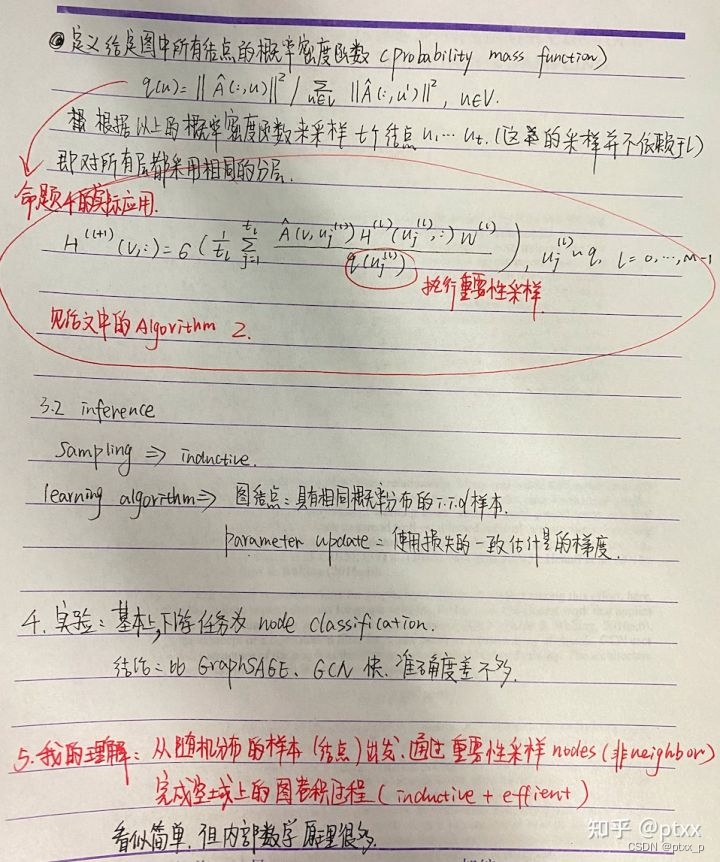 定义给定图中所有结点的概率密度函数 (probability mass function)
q(u) = ||Â(:,u)||² / Σ_{u'∈V} ||Â(:,u')||², u∈V.
根据以上的概率密度函数来采样 t个结点 u₁…u_t. (这里的采样并不依赖于l)
即对所有层都采用相同的分层.
命题4的实际应用.
H^{(l+1)}(v,:) = σ( 1/t_l Σ_{j=1}^{t_l} Â(v,u_j^{(l)}) H^{(l)}(u_j^{(l)},:) W^{(l)} / q(u_j^{(l)}) ), u_j^{(l)} ~ q, l=0,…,M-1
执行重要性采样
见论文中的 Algorithm 2.
3.2 inference
Sampling ⇒ inductive.
learning algorithm ⇒ 图结点：具有相同概率分布的 i.i.d 样本.
parameter update：使用损失的一致估计量的梯度.
4. 实验：基本上,下游任务为 node classification.
结论：比 GraphSAGE、GCN 快. 准确度差不多.
5. 我的理解：从随机分布的样本 (结点) 出发. 通过重要性采样 nodes (非neighbor)
完成空域上的图卷积过程 ( inductive + effient )
看似简单. 但内部数学原理很多.
知乎 @ptxx
CSDN @ptxx_p